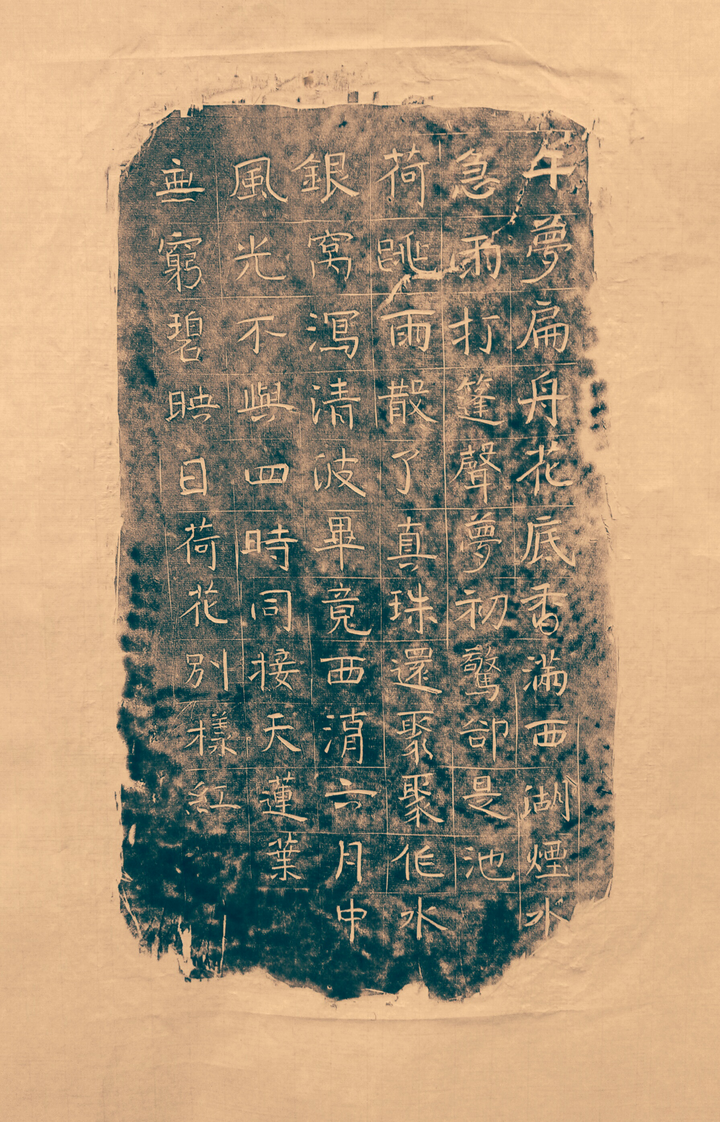 午夢扁舟花底香滿西湖煙水
急雨打篷聲夢初驚卻是池
荷跳雨散了真珠還聚聚作水
銀窩瀉清波畢竟西消六月中
風光不與四時同接天蓮葉
無窮碧映日荷花別樣紅